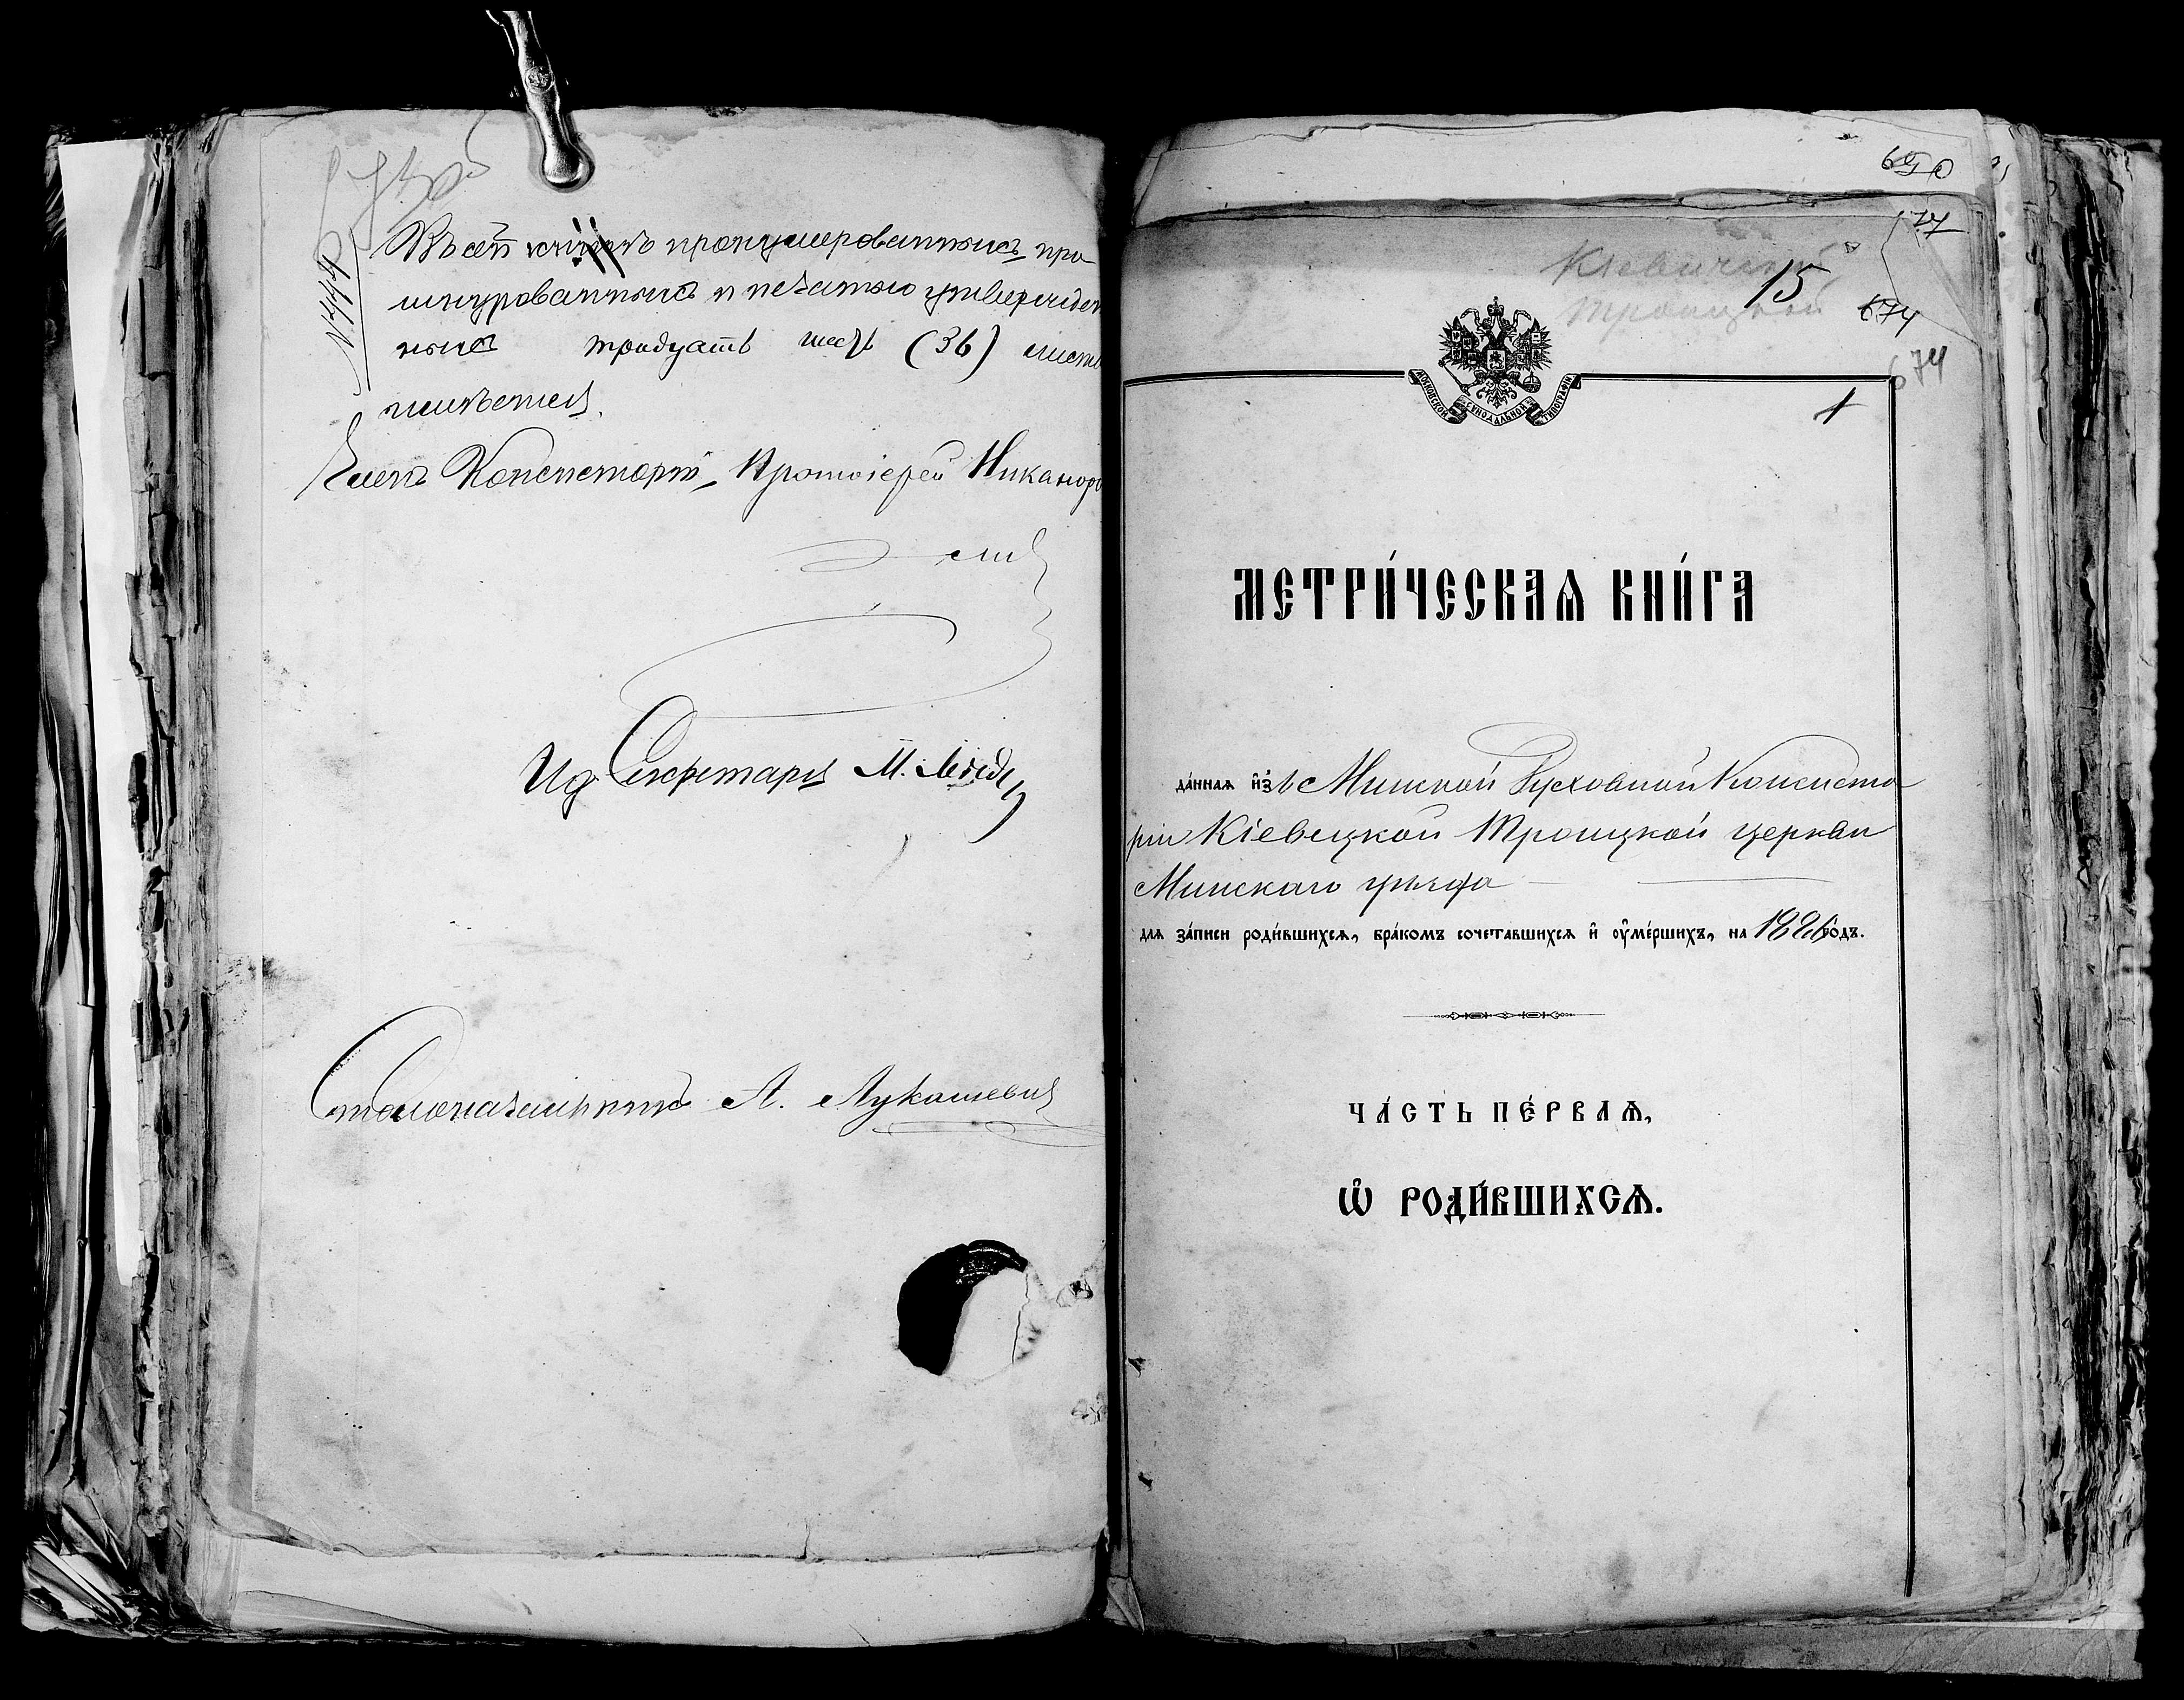 Въ сей книгѣ пронумерованныхъ, про
шнурованныхъ и печатью утвержден
ныхъ тридцать шесть (36) листовъ
имѣется.
Членъ Консисторіи, Протоіерей Никаноръ
Ид Секретаря М.
Столоначальникъ А. Лукашевич
650
15
674
674
Троицкой
МОСКОВСКОЙ СѴНОДАЛЬНОЙ ТИПОГРАФІИ
1
МЕТРИ́ЧЕСКАѦ КНИ́ГА
да́ннаѧ и҆зъ Минской Духовной Консисто
ріи Кіевецкой Троицкой церкви
Минскаго уѣзда
длѧ за́писи роди́вшихсѧ, бра́комъ сочетавшихсѧ и҆ ᲂу҆ме́ршихъ, на 1886 го́дъ.
ЧА́СТЬ ПЕ́РВАѦ,
Ѡ҆ РОДИ́ВШИХСѦ.